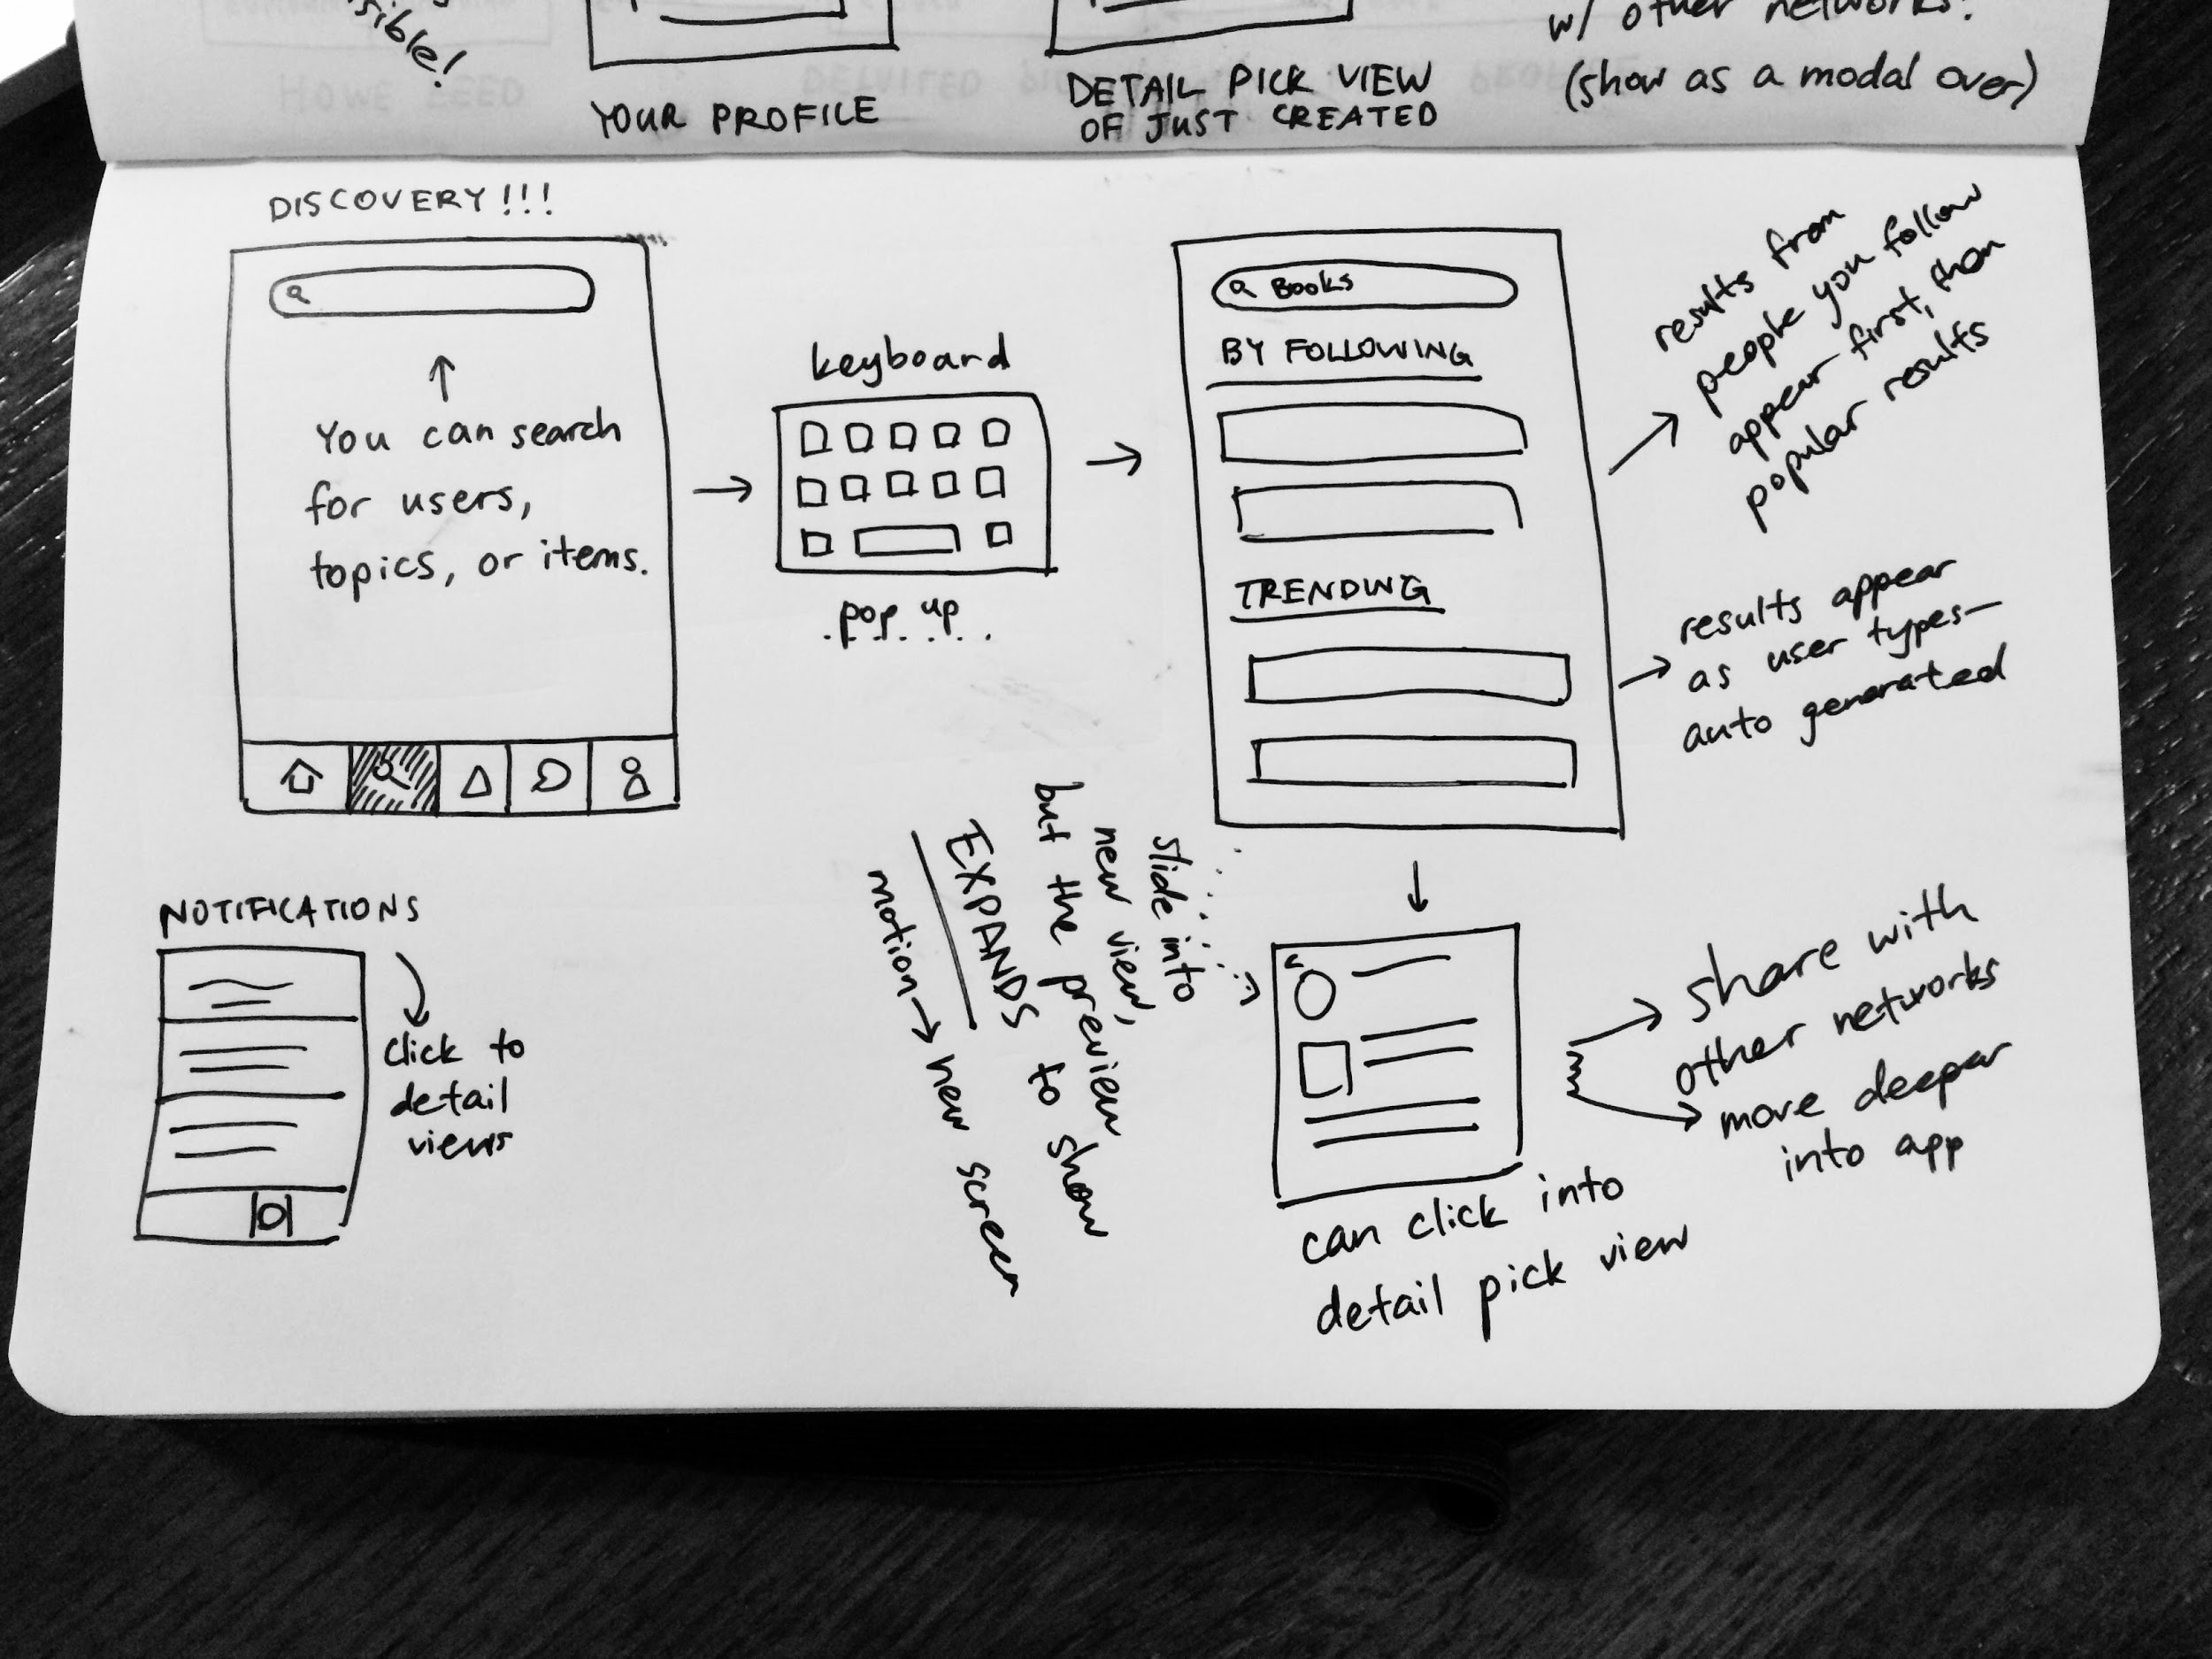 sible!
YOUR PROFILE
DETAIL PICK VIEW
OF JUST CREATED
w/ other networks?
(show as a modal over)
DISCOVERY!!!
You can search
for users,
topics, or items.
keyboard
pop up
Books
BY FOLLOWING
TRENDING
results from
people you follow
appear first, then
popular results
results appear
as user types—
auto generated
NOTIFICATIONS
click to
detail
views
slide into
new view,
but the preview
EXPANDS to show
motion → new screen
share with
other networks
move deeper
into app
can click into
detail pick view